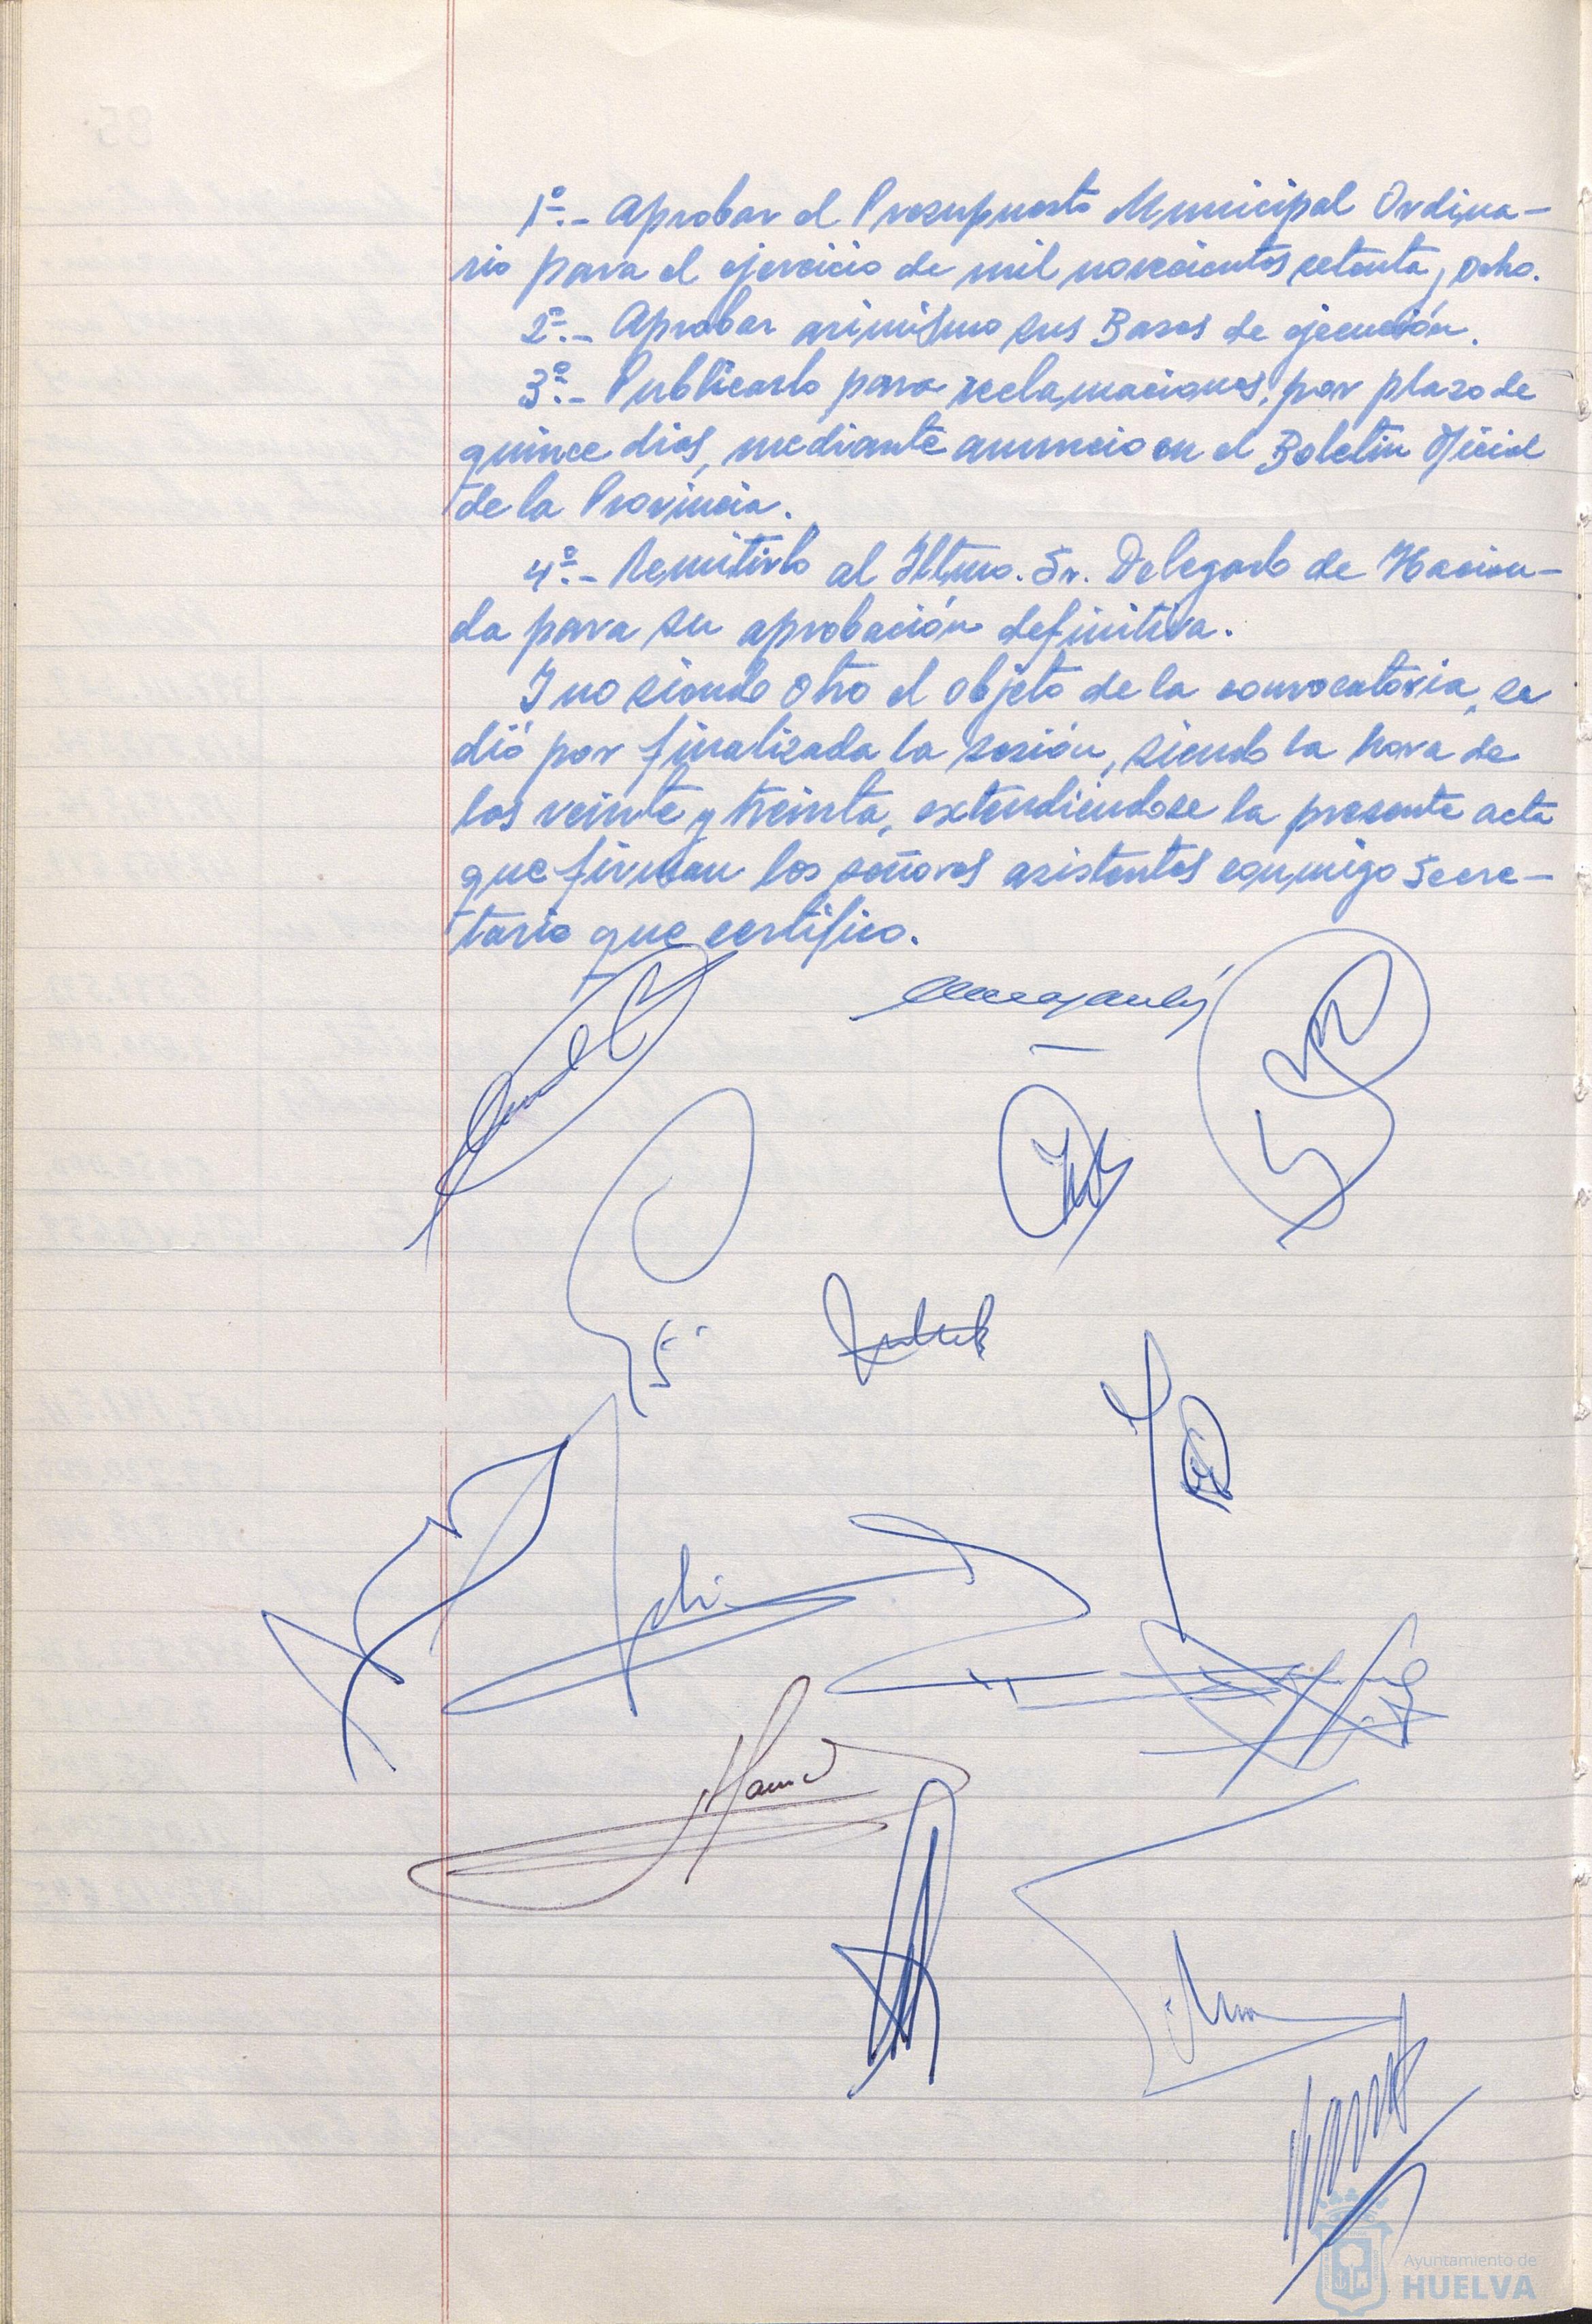 1º.- Aprobar el Presupuesto Municipal Ordina-
rio para el ejercicio de mil novecientos setenta y ocho.
2º.- Aprobar asimismo sus Bases de ejecución.
3º.- Publicarlo para reclamaciones, por plazo de
quince dias, mediante anuncio en el Boletin Oficial
de la Provincia.
4º.- Remitirlo al Iltmo. Sr. Delegado de Hacien-
da para su aprobación definitiva.
Y no siendo otro el objeto de la convocatoria, se
dió por finalizada la sesión, siendo la hora de
las veinte y treinta, extendiendose la presente acta
que firman los señores asistentes conmigo Secre-
tario que certifico.
Ayuntamiento de
HUELVA